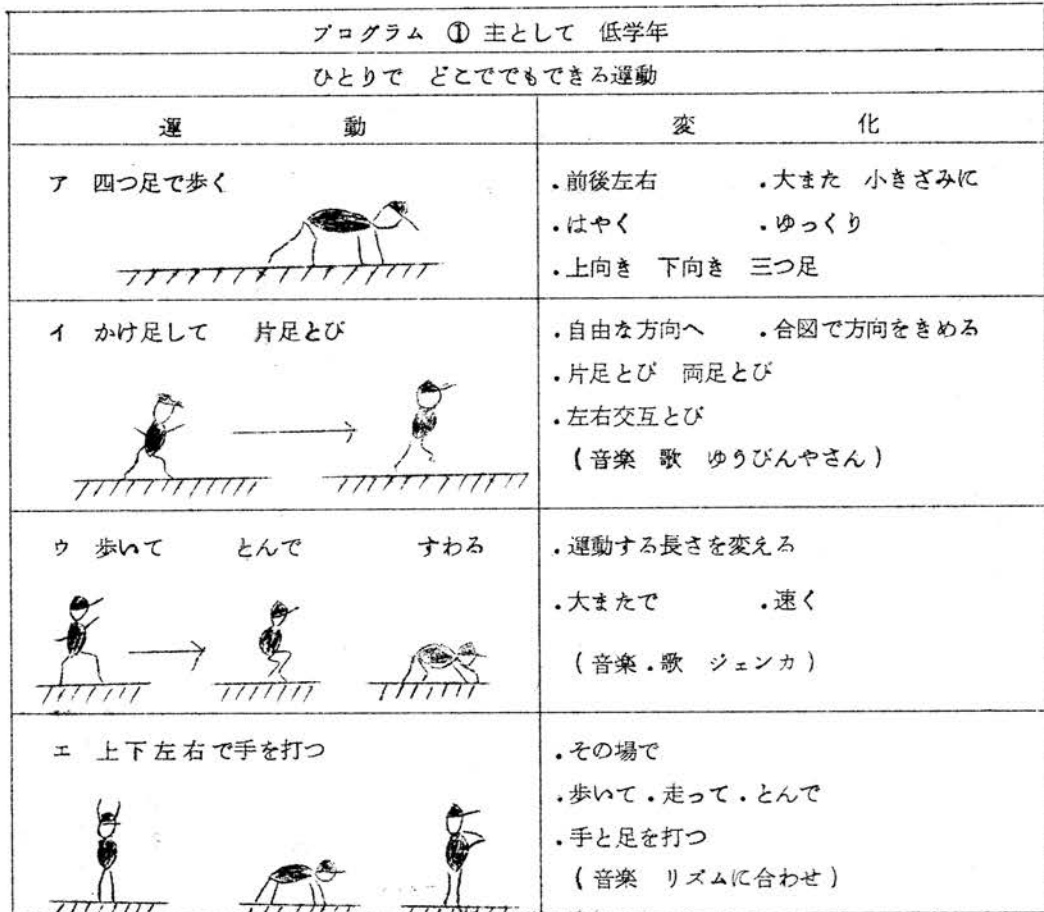 プログラム ① 主として 低学年
ひとりで どこででもできる運動
運 動
変 化
ア 四つ足で歩く
．前後左右 ．大また 小きざみに
．はやく ．ゆっくり
．上向き 下向き 三つ足
イ かけ足して 片足とび
．自由な方向へ ．合図で方向をきめる
．片足とび 両足とび
．左右交互とび
（音楽 歌 ゆうびんやさん）
ウ 歩いて とんで すわる
．運動する長さを変える
．大またで ．速く
（音楽．歌 ジェンカ）
エ 上下左右で手を打つ
．その場で
．歩いて．走って．とんで
．手と足を打つ
（音楽 リズムに合わせ）